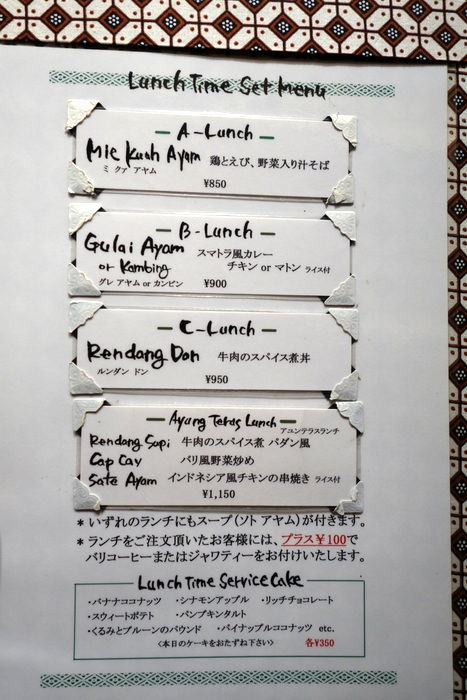 Lunch Time Set Menu
A-Lunch
Mie Kuah Ayam 鶏とえび、野菜入り汁そば
ミ クァ アヤム
¥850
B-Lunch
Gulai Ayam スマトラ風カレー
or Kambing チキン or マトン ライス付
グレ アヤム or カンビン ¥900
C-Lunch
Rendang Don 牛肉のスパイス煮丼
ルンダン ドン
¥950
Ayung Teras Lunch
アユンテラスランチ
Rendang Sapi 牛肉のスパイス煮 パダン風
Cap Cay バリ風野菜炒め
Sate Ayam インドネシア風チキンの串焼き ライス付
¥1,150
＊いずれのランチにもスープ（ソト アヤム）が付きます。
＊ランチをご注文頂いたお客様には、プラス¥100で
バリコーヒーまたはジャワティーをお付けいたします。
Lunch Time Service Cake
・バナナココナッツ ・シナモンアップル ・リッチチョコレート
・スウィートポテト ・パンプキンタルト
・くるみとプルーンのパウンド ・パイナップルココナッツ etc.
〈本日のケーキをおたずね下さい〉 各¥350